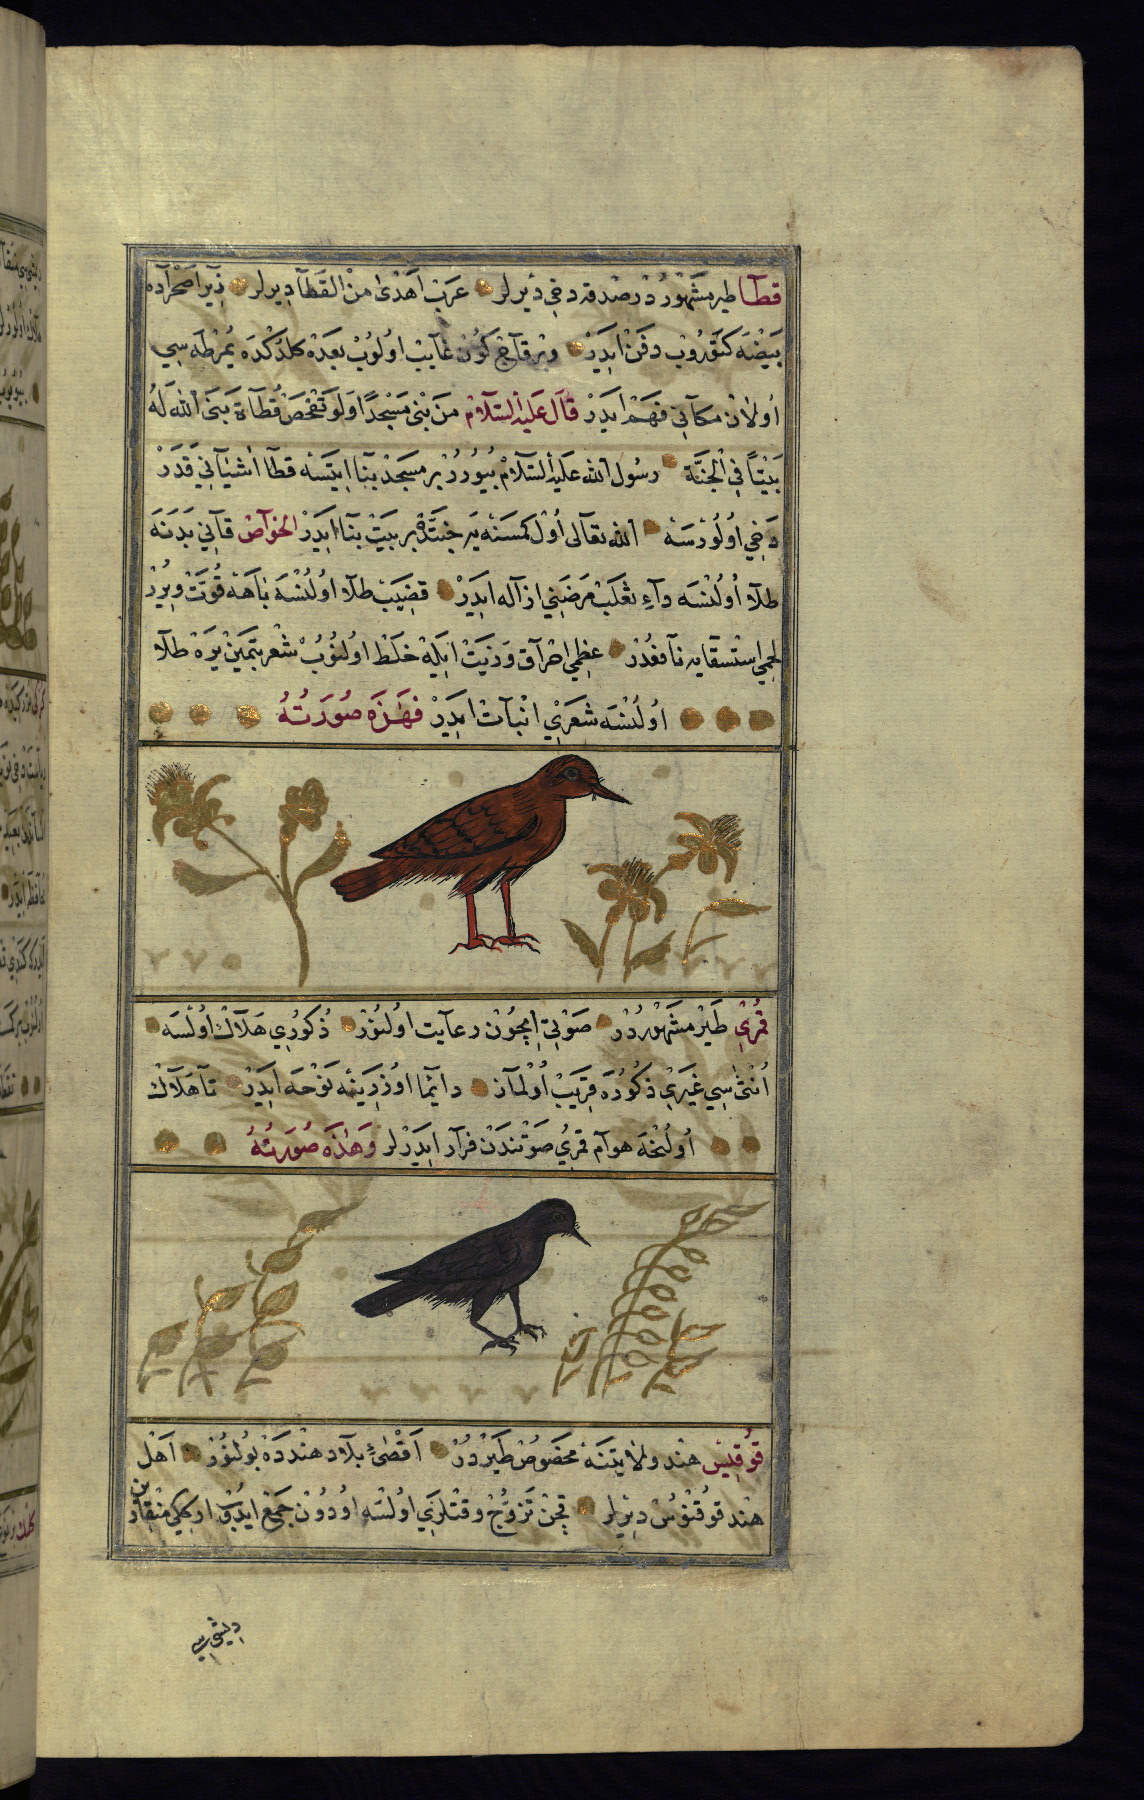 قطا طير مشهوردر صدفه دخي ديرلر عرب اهدى من القطا ديرلر زيرا صحراده
بيضه كتوروب دفن ايدر و برقاچ كون غايب اولوب بعده كلدكده يمرطه سي
اولان مكاني فهم ايدر قال عليه السلام من بنى مسجدا ولو تفحص قطاة بنى الله له
بيتا في الجنة رسول الله عليه السلام بيورر بر مسجد بنا ايتسه قطا اشياني قدر
دخي اولورسه الله تعالى اول كمسنه يه جنتده بر بيت بنا ايدر الخواص قاني بدنه
طلا اولنسه داء ثعلب مرضني ازاله ايدر قضيب طلا اولنسه باهه قوت ويرر
لحمي استسقايه نافعدر عظمي احراق و زيت ايله خلط اولنوب شعر بتمين يره طلا
اولنسه شعري انبات ايدر فهذه صورته
قمري طير مشهوردر صوتي ايچون رعايت اولنور ذكوري هلاك اولسه
انثى سي غيري ذكوره قريب اولماز دايما اوزرينه نوحه ايدر تا هلاك
اولنجه هوام قمري صوتندن فرار ايدرلر وهذه صورته
قوقيس هند ولايتنه مخصوص طيردر اقصى بلاد هندده بولنور اهل
هند قوقنوس ديرلر قچن تزوج وقتلري اولسه اودون جمع ايدوب اركي منقارين
ديشي سي